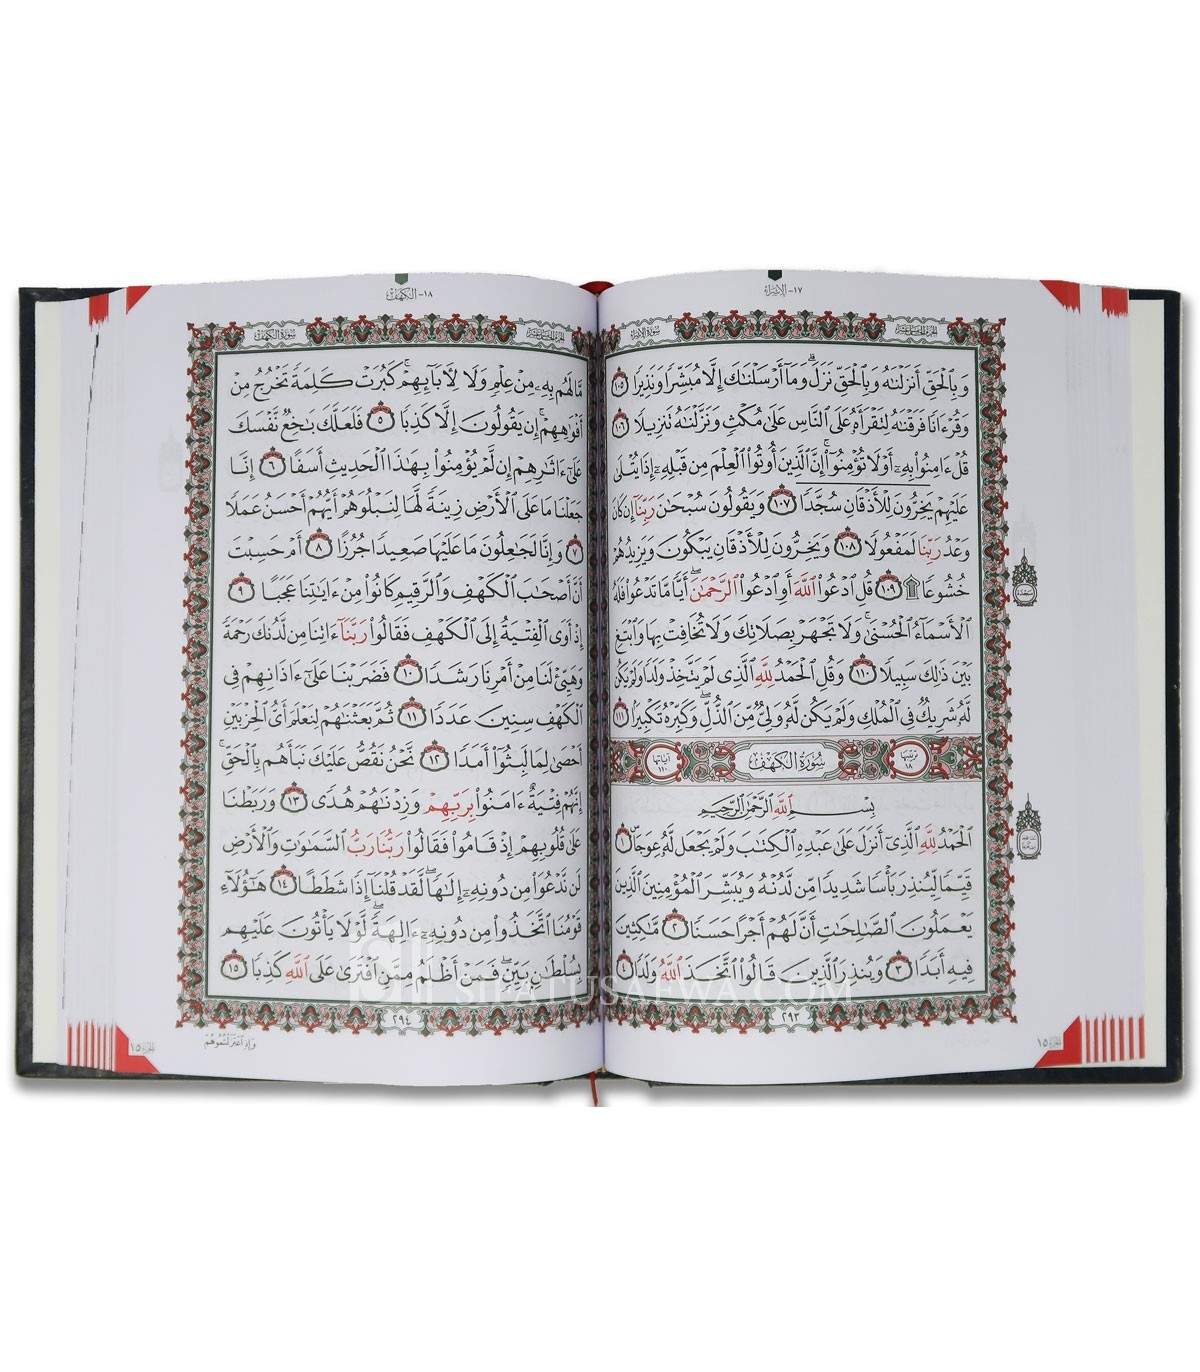 ١٧- الإسراء
الجزء الخامس عشر
سورة الإسراء
وَبِٱلْحَقِّ أَنزَلْنَٰهُ وَبِٱلْحَقِّ نَزَلَ ۗ وَمَآ أَرْسَلْنَٰكَ إِلَّا مُبَشِّرًا وَنَذِيرًا ١٠٥
وَقُرْءَانًا فَرَقْنَٰهُ لِتَقْرَأَهُۥ عَلَى ٱلنَّاسِ عَلَىٰ مُكْثٍ وَنَزَّلْنَٰهُ تَنزِيلًا ١٠٦
قُلْ ءَامِنُوا۟ بِهِۦٓ أَوْ لَا تُؤْمِنُوٓا۟ ۚ إِنَّ ٱلَّذِينَ أُوتُوا۟ ٱلْعِلْمَ مِن قَبْلِهِۦٓ إِذَا يُتْلَىٰ
عَلَيْهِمْ يَخِرُّونَ لِلْأَذْقَانِ سُجَّدًا ١٠٧ وَيَقُولُونَ سُبْحَٰنَ رَبِّنَآ إِن كَانَ
وَعْدُ رَبِّنَا لَمَفْعُولًا ١٠٨ وَيَخِرُّونَ لِلْأَذْقَانِ يَبْكُونَ وَيَزِيدُهُمْ
خُشُوعًا ۩ ١٠٩ قُلِ ٱدْعُوا۟ ٱللَّهَ أَوِ ٱدْعُوا۟ ٱلرَّحْمَٰنَ ۖ أَيًّا مَّا تَدْعُوا۟ فَلَهُ
ٱلْأَسْمَآءُ ٱلْحُسْنَىٰ ۚ وَلَا تَجْهَرْ بِصَلَاتِكَ وَلَا تُخَافِتْ بِهَا وَٱبْتَغِ
بَيْنَ ذَٰلِكَ سَبِيلًا ١١٠ وَقُلِ ٱلْحَمْدُ لِلَّهِ ٱلَّذِى لَمْ يَتَّخِذْ وَلَدًا وَلَمْ يَكُن
لَّهُۥ شَرِيكٌ فِى ٱلْمُلْكِ وَلَمْ يَكُن لَّهُۥ وَلِىٌّ مِّنَ ٱلذُّلِّ ۖ وَكَبِّرْهُ تَكْبِيرًۢا ١١١
ترتيبها ١٨ سُورَةُ الكَهْفِ آياتها ١١٠
بِسْمِ ٱللَّهِ ٱلرَّحْمَٰنِ ٱلرَّحِيمِ
ٱلْحَمْدُ لِلَّهِ ٱلَّذِىٓ أَنزَلَ عَلَىٰ عَبْدِهِ ٱلْكِتَٰبَ وَلَمْ يَجْعَل لَّهُۥ عِوَجَا ۜ ١
قَيِّمًا لِّيُنذِرَ بَأْسًا شَدِيدًا مِّن لَّدُنْهُ وَيُبَشِّرَ ٱلْمُؤْمِنِينَ ٱلَّذِينَ
يَعْمَلُونَ ٱلصَّٰلِحَٰتِ أَنَّ لَهُمْ أَجْرًا حَسَنًا ٢ مَّٰكِثِينَ
فِيهِ أَبَدًا ٣ وَيُنذِرَ ٱلَّذِينَ قَالُوا۟ ٱتَّخَذَ ٱللَّهُ وَلَدًا ٤
٢٩٣
الجزء ١٥
١٨- الكهف
الجزء الخامس عشر
سورة الكهف
مَّا لَهُم بِهِۦ مِنْ عِلْمٍ وَلَا لِـَٔابَآئِهِمْ ۚ كَبُرَتْ كَلِمَةً تَخْرُجُ مِنْ
أَفْوَٰهِهِمْ ۚ إِن يَقُولُونَ إِلَّا كَذِبًا ٥ فَلَعَلَّكَ بَٰخِعٌ نَّفْسَكَ
عَلَىٰٓ ءَاثَٰرِهِمْ إِن لَّمْ يُؤْمِنُوا۟ بِهَٰذَا ٱلْحَدِيثِ أَسَفًا ٦ إِنَّا
جَعَلْنَا مَا عَلَى ٱلْأَرْضِ زِينَةً لَّهَا لِنَبْلُوَهُمْ أَيُّهُمْ أَحْسَنُ عَمَلًا
٧ وَإِنَّا لَجَٰعِلُونَ مَا عَلَيْهَا صَعِيدًا جُرُزًا ٨ أَمْ حَسِبْتَ
أَنَّ أَصْحَٰبَ ٱلْكَهْفِ وَٱلرَّقِيمِ كَانُوا۟ مِنْ ءَايَٰتِنَا عَجَبًا ٩
إِذْ أَوَى ٱلْفِتْيَةُ إِلَى ٱلْكَهْفِ فَقَالُوا۟ رَبَّنَآ ءَاتِنَا مِن لَّدُنكَ رَحْمَةً
وَهَيِّئْ لَنَا مِنْ أَمْرِنَا رَشَدًا ١٠ فَضَرَبْنَا عَلَىٰٓ ءَاذَانِهِمْ فِى
ٱلْكَهْفِ سِنِينَ عَدَدًا ١١ ثُمَّ بَعَثْنَٰهُمْ لِنَعْلَمَ أَىُّ ٱلْحِزْبَيْنِ
أَحْصَىٰ لِمَا لَبِثُوٓا۟ أَمَدًا ١٢ نَّحْنُ نَقُصُّ عَلَيْكَ نَبَأَهُم بِٱلْحَقِّ ۚ
إِنَّهُمْ فِتْيَةٌ ءَامَنُوا۟ بِرَبِّهِمْ وَزِدْنَٰهُمْ هُدًى ١٣ وَرَبَطْنَا
عَلَىٰ قُلُوبِهِمْ إِذْ قَامُوا۟ فَقَالُوا۟ رَبُّنَا رَبُّ ٱلسَّمَٰوَٰتِ وَٱلْأَرْضِ
لَن نَّدْعُوَا۟ مِن دُونِهِۦٓ إِلَٰهًا ۖ لَّقَدْ قُلْنَآ إِذًا شَطَطًا ١٤ هَٰٓؤُلَآءِ
قَوْمُنَا ٱتَّخَذُوا۟ مِن دُونِهِۦٓ ءَالِهَةً ۖ لَّوْلَا يَأْتُونَ عَلَيْهِم
بِسُلْطَٰنٍۭ بَيِّنٍ ۖ فَمَنْ أَظْلَمُ مِمَّنِ ٱفْتَرَىٰ عَلَى ٱللَّهِ كَذِبًا ١٥
٢٩٤
وَإِذِ ٱعْتَزَلْتُمُوهُمْ
الجزء ١٥
SIFATUSAFWA.COM